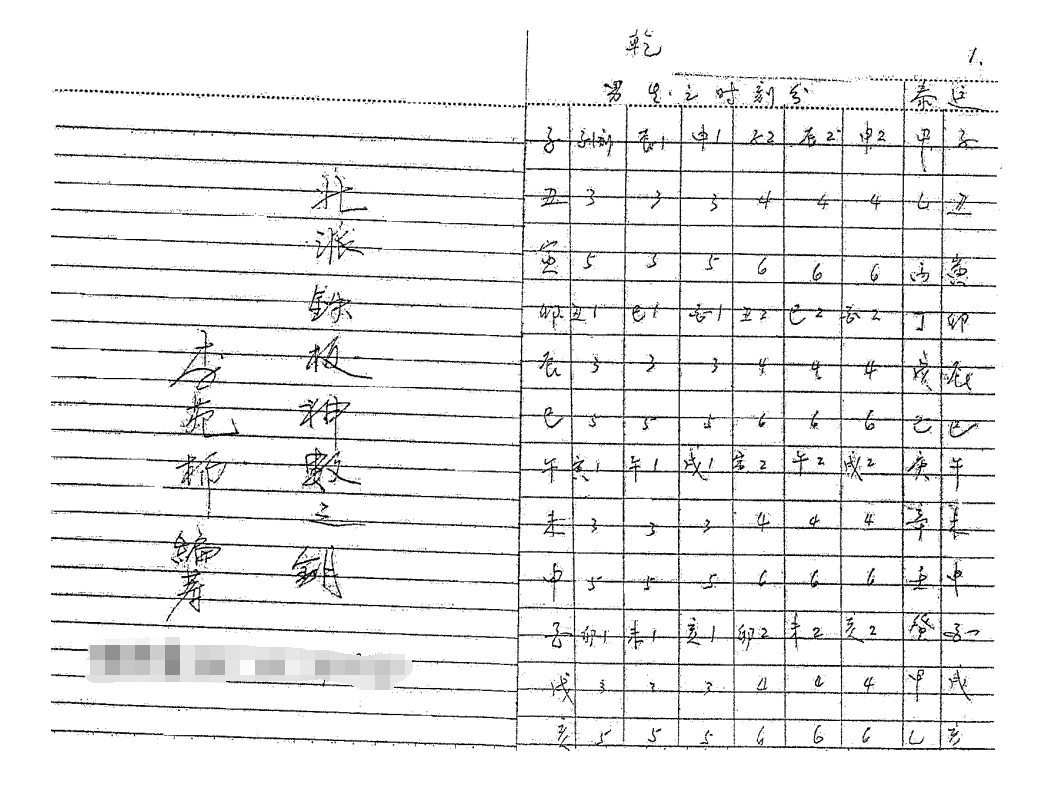 北派鉄板神数之鈅
李
編著
乾
1.
男生之时刻分 泰运
子 子1刻 辰1 申1 子2 辰2 申2 甲 子
丑 3 3 3 4 4 4 乙 丑
寅 5 5 5 6 6 6 丙 寅
卯 丑1 巳1 酉1 丑2 巳2 酉2 丁 卯
辰 3 3 3 4 4 4 戊 辰
巳 5 5 5 6 6 6 己 巳
午 寅1 午1 戌1 寅2 午2 戌2 庚 午
未 3 3 3 4 4 4 辛 未
申 5 5 5 6 6 6 壬 申
卯1 未1 亥1 卯2 未2 亥2 癸
戌 3 3 3 4 4 4 甲 戌
亥 5 5 5 6 6 6 乙 亥